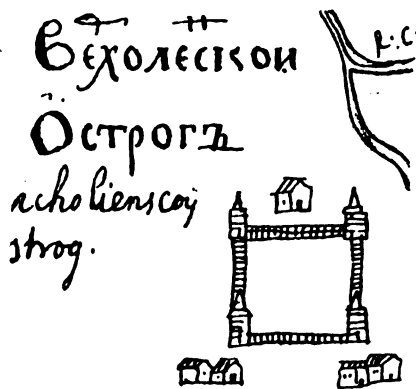 Вехолескои
Острогъ
rcholienscoÿ
strog.
R: C